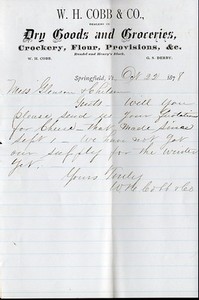 W. H. COBB & CO.,
DEALERS IN
Dry Goods and Groceries,
Crockery, Flour, Provisions, &c.
W. H. COBB.
G. S. DERBY.
Springfield, Vt., Oct 22 1878
Mess
Gents - Will you
please send us your Quotation
for Cheese - that made since
Sept 1 - We have not got
our supply for the winter
yet.
Yours Truly
W H Cobb & Co